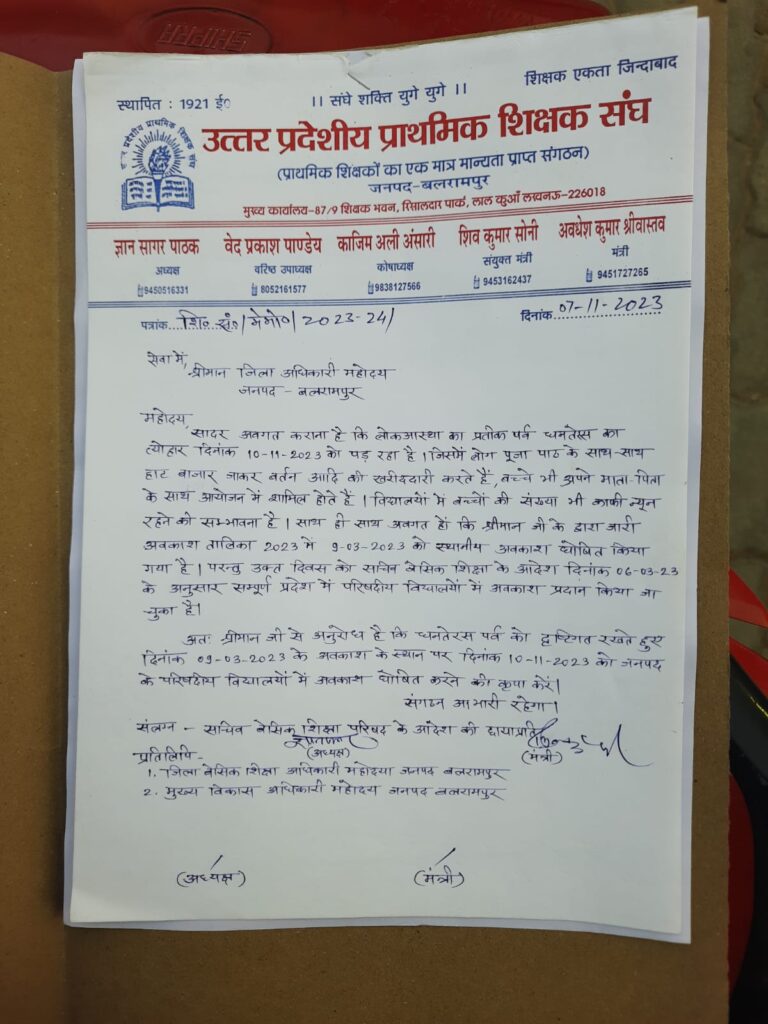 स्थापित : 1921 ई०
।। संघे शक्ति युगे युगे ।।
शिक्षक एकता जिन्दाबाद
उत्तर प्रदेशीय प्राथमिक शिक्षक संघ
(प्राथमिक शिक्षकों का एक मात्र मान्यता प्राप्त संगठन)
जनपद-बलरामपुर
मुख्य कार्यालय-87/9 शिक्षक भवन, रिसालदार पार्क, लाल कुआँ लखनऊ-226018
ज्ञान सागर पाठक वेद प्रकाश पाण्डेय काजिम अली अंसारी शिव कुमार सोनी अवधेश कुमार श्रीवास्तव
अध्यक्ष वरिष्ठ उपाध्यक्ष कोषाध्यक्ष संयुक्त मंत्री मंत्री
9450516331 8052161577 9838127566 9453162437 9451727265
पत्रांक शि० सं०/मेमो०/2023-24/ दिनांक 07-11-2023
सेवा में,
श्रीमान जिला अधिकारी महोदय
जनपद - बलरामपुर
महोदय,
सादर अवगत कराना है कि लोकआस्था का प्रतीक पर्व धनतेरस का
त्योहार दिनांक 10-11-2023 को पड़ रहा है। जिसमें लोग पूजा पाठ के साथ-साथ
हाट बाजार जाकर बर्तन आदि की खरीददारी करते हैं, बच्चे भी अपने माता-पिता
के साथ आयोजन में शामिल होते हैं। विद्यालयों में बच्चों की संख्या भी काफी न्यून
रहने की सम्भावना है। साथ ही साथ अवगत हों कि श्रीमान जी के द्वारा जारी
अवकाश तालिका 2023 में 9-03-2023 को स्थानीय अवकाश घोषित किया
गया है। परन्तु उक्त दिवस को सचिव बेसिक शिक्षा के आदेश दिनांक 06-03-23
के अनुसार सम्पूर्ण प्रदेश में परिषदीय विद्यालयों में अवकाश प्रदान किया जा
चुका है।
अतः श्रीमान जी से अनुरोध है कि धनतेरस पर्व को दृष्टिगत रखते हुए
दिनांक 09-03-2023 के अवकाश के स्थान पर दिनांक 10-11-2023 को जनपद
के परिषदीय विद्यालयों में अवकाश घोषित करने की कृपा करें।
संगठन आभारी रहेगा।
संलग्न - सचिव बेसिक शिक्षा परिषद के आदेश की छायाप्रति
(अध्यक्ष) (मंत्री)
प्रतिलिपि-
1. जिला बेसिक शिक्षा अधिकारी महोदया जनपद बलरामपुर
2. मुख्य विकास अधिकारी महोदय जनपद बलरामपुर
(अध्यक्ष) (मंत्री)